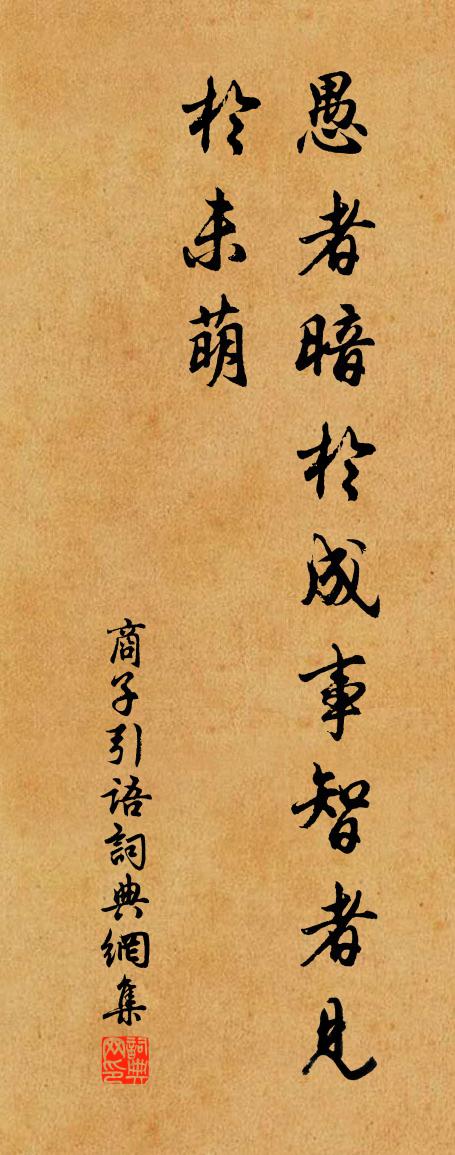 愚者暗於成事智者見
於未萌
商子引语詞典網集
詞典网印